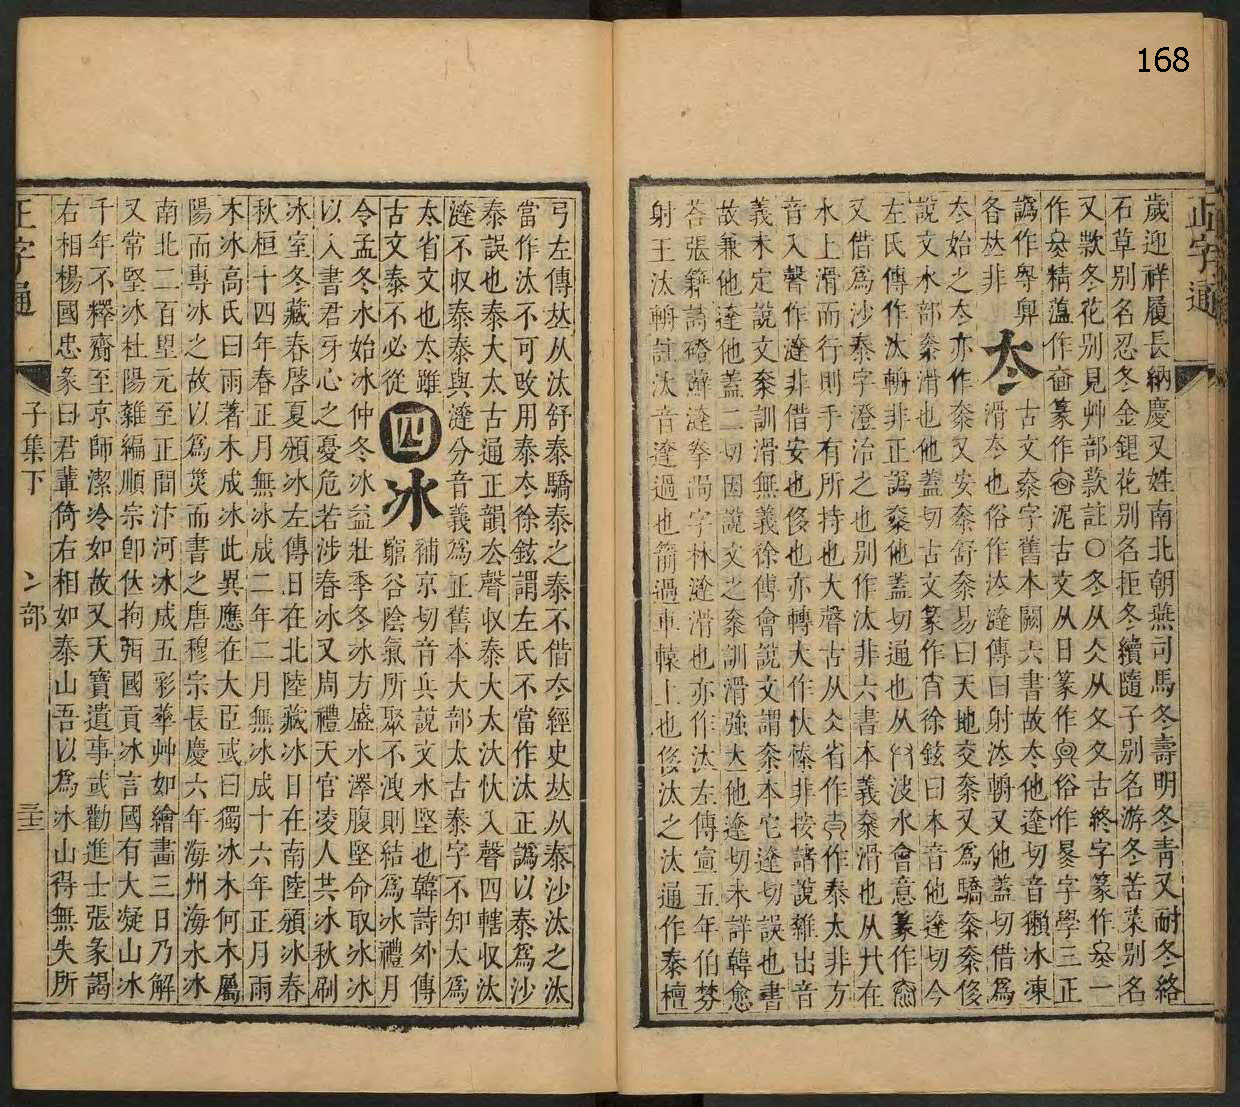 168
正字通
歲迎祥履長納慶又姓南北朝燕司馬冬壽明冬青又耐冬絡
石草别名忍冬金銀花别名拒冬續隨子别名游冬苦菜别名
又款冬花别見艸部款註○冬从仌从夂夂古終字篆作 一
作 精薀作 篆作 泥古文从日篆作 俗作 字學三正
譌作 
各 非
夳
古文泰字舊本闕六書故夳他達切音獺冰凍
滑夳也俗作汏達傳曰射汏輈又他蓋切借爲
夳始之夳亦作泰又安泰舒泰易曰天地交泰又爲驕泰泰侈
說文水部泰滑也他蓋切古文篆作 徐鉉曰本音他達切今
左氏傳作汏輈非正譌泰他蓋切通也从 波水會意篆作 
又借爲沙泰字澄治之也别作汰非六書本義泰滑也从廾在
水上滑而行則手有所持也大聲古从仌省作 作泰太非方
音入聲作澾非借安也侈也亦轉大作忕㥭非按諸說雜出音
義未定說文泰訓滑無義徐傅會說文謂泰本它達切誤也書
故兼他達他蓋二切因說文之泰訓滑強大他達切未詳韓愈
荅張籍詩磴蘚澾拳跼字林澾滑也亦作汰左傳宣五年伯棼
射王汰輈註汰音達過也箭過車轅上也侈汰之汰通作泰檀
弓左傳 从汰舒泰驕泰之泰不借夳經史 从泰沙汰之汰
當作汰不可攺用泰夳徐鉉謂左氏不當作汰正譌以泰爲沙
泰誤也泰大太古通正韻去聲収泰大太汰忕入聲四轄収汰
澾不収泰泰與澾分音義爲正舊本大部太古泰字不知太爲
太省文也夳雖
古文泰不必從
四
冰
補京切音兵說文水堅也韓詩外傳
窮谷陰氣所聚不洩則結爲冰禮月
令孟冬水始冰仲冬冰益壯季冬冰方盛水澤腹堅命取冰冰
以入書君牙心之憂危若涉春冰又周禮天官凌人共冰秋刷
冰室冬藏春啓夏頒冰左傳日在北陸藏冰日在南陸頒冰春
秋桓十四年春正月無冰成二年二月無冰成十六年正月雨
木冰高氏曰雨著木成冰此異應在大臣或曰獨冰木何木屬
陽而專冰之故以爲災而書之唐穆宗長慶六年海州海水冰
南北二百里元至正間汴河冰成五彩華艸如繪畫三日乃解
又常堅冰杜陽雜編順宗卽位拘弭國貢冰言國有大凝山冰
千年不釋齎至京師潔冷如故又天寶遺事或勸進士張彖謁
右相楊國忠彖曰君輩倚右相如泰山吾以爲冰山得無失所
正字通
子集下
冫部
三十三